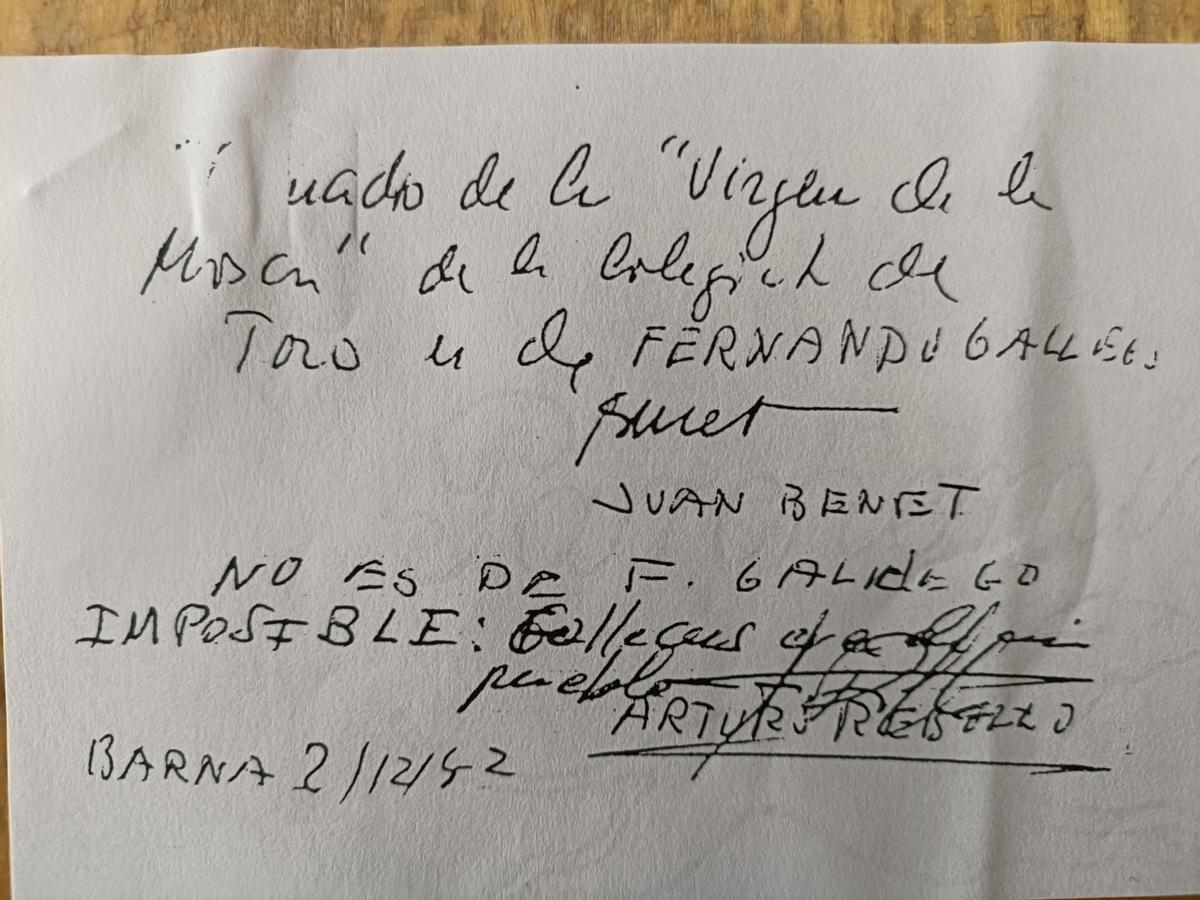 uadro de la "Virgen de la
Mosca" de la Colegial de
Toro es de FERNANDO GALLEGO
Benet
JUAN BENET
NO ES DE F. GALLEGO
IMPOSIBLE: Gallegus
pueblo
ARTURO REBELLO
BARNA 2/12/92